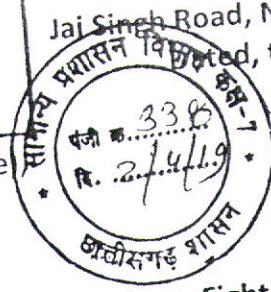 Jai Singh Road, N
ted,
सामान्य प्रशासन विभाग कक्ष-7
पंजी क्र. 338
दि. 2/4/19
छत्तीसगढ़ शासन
e
Fight